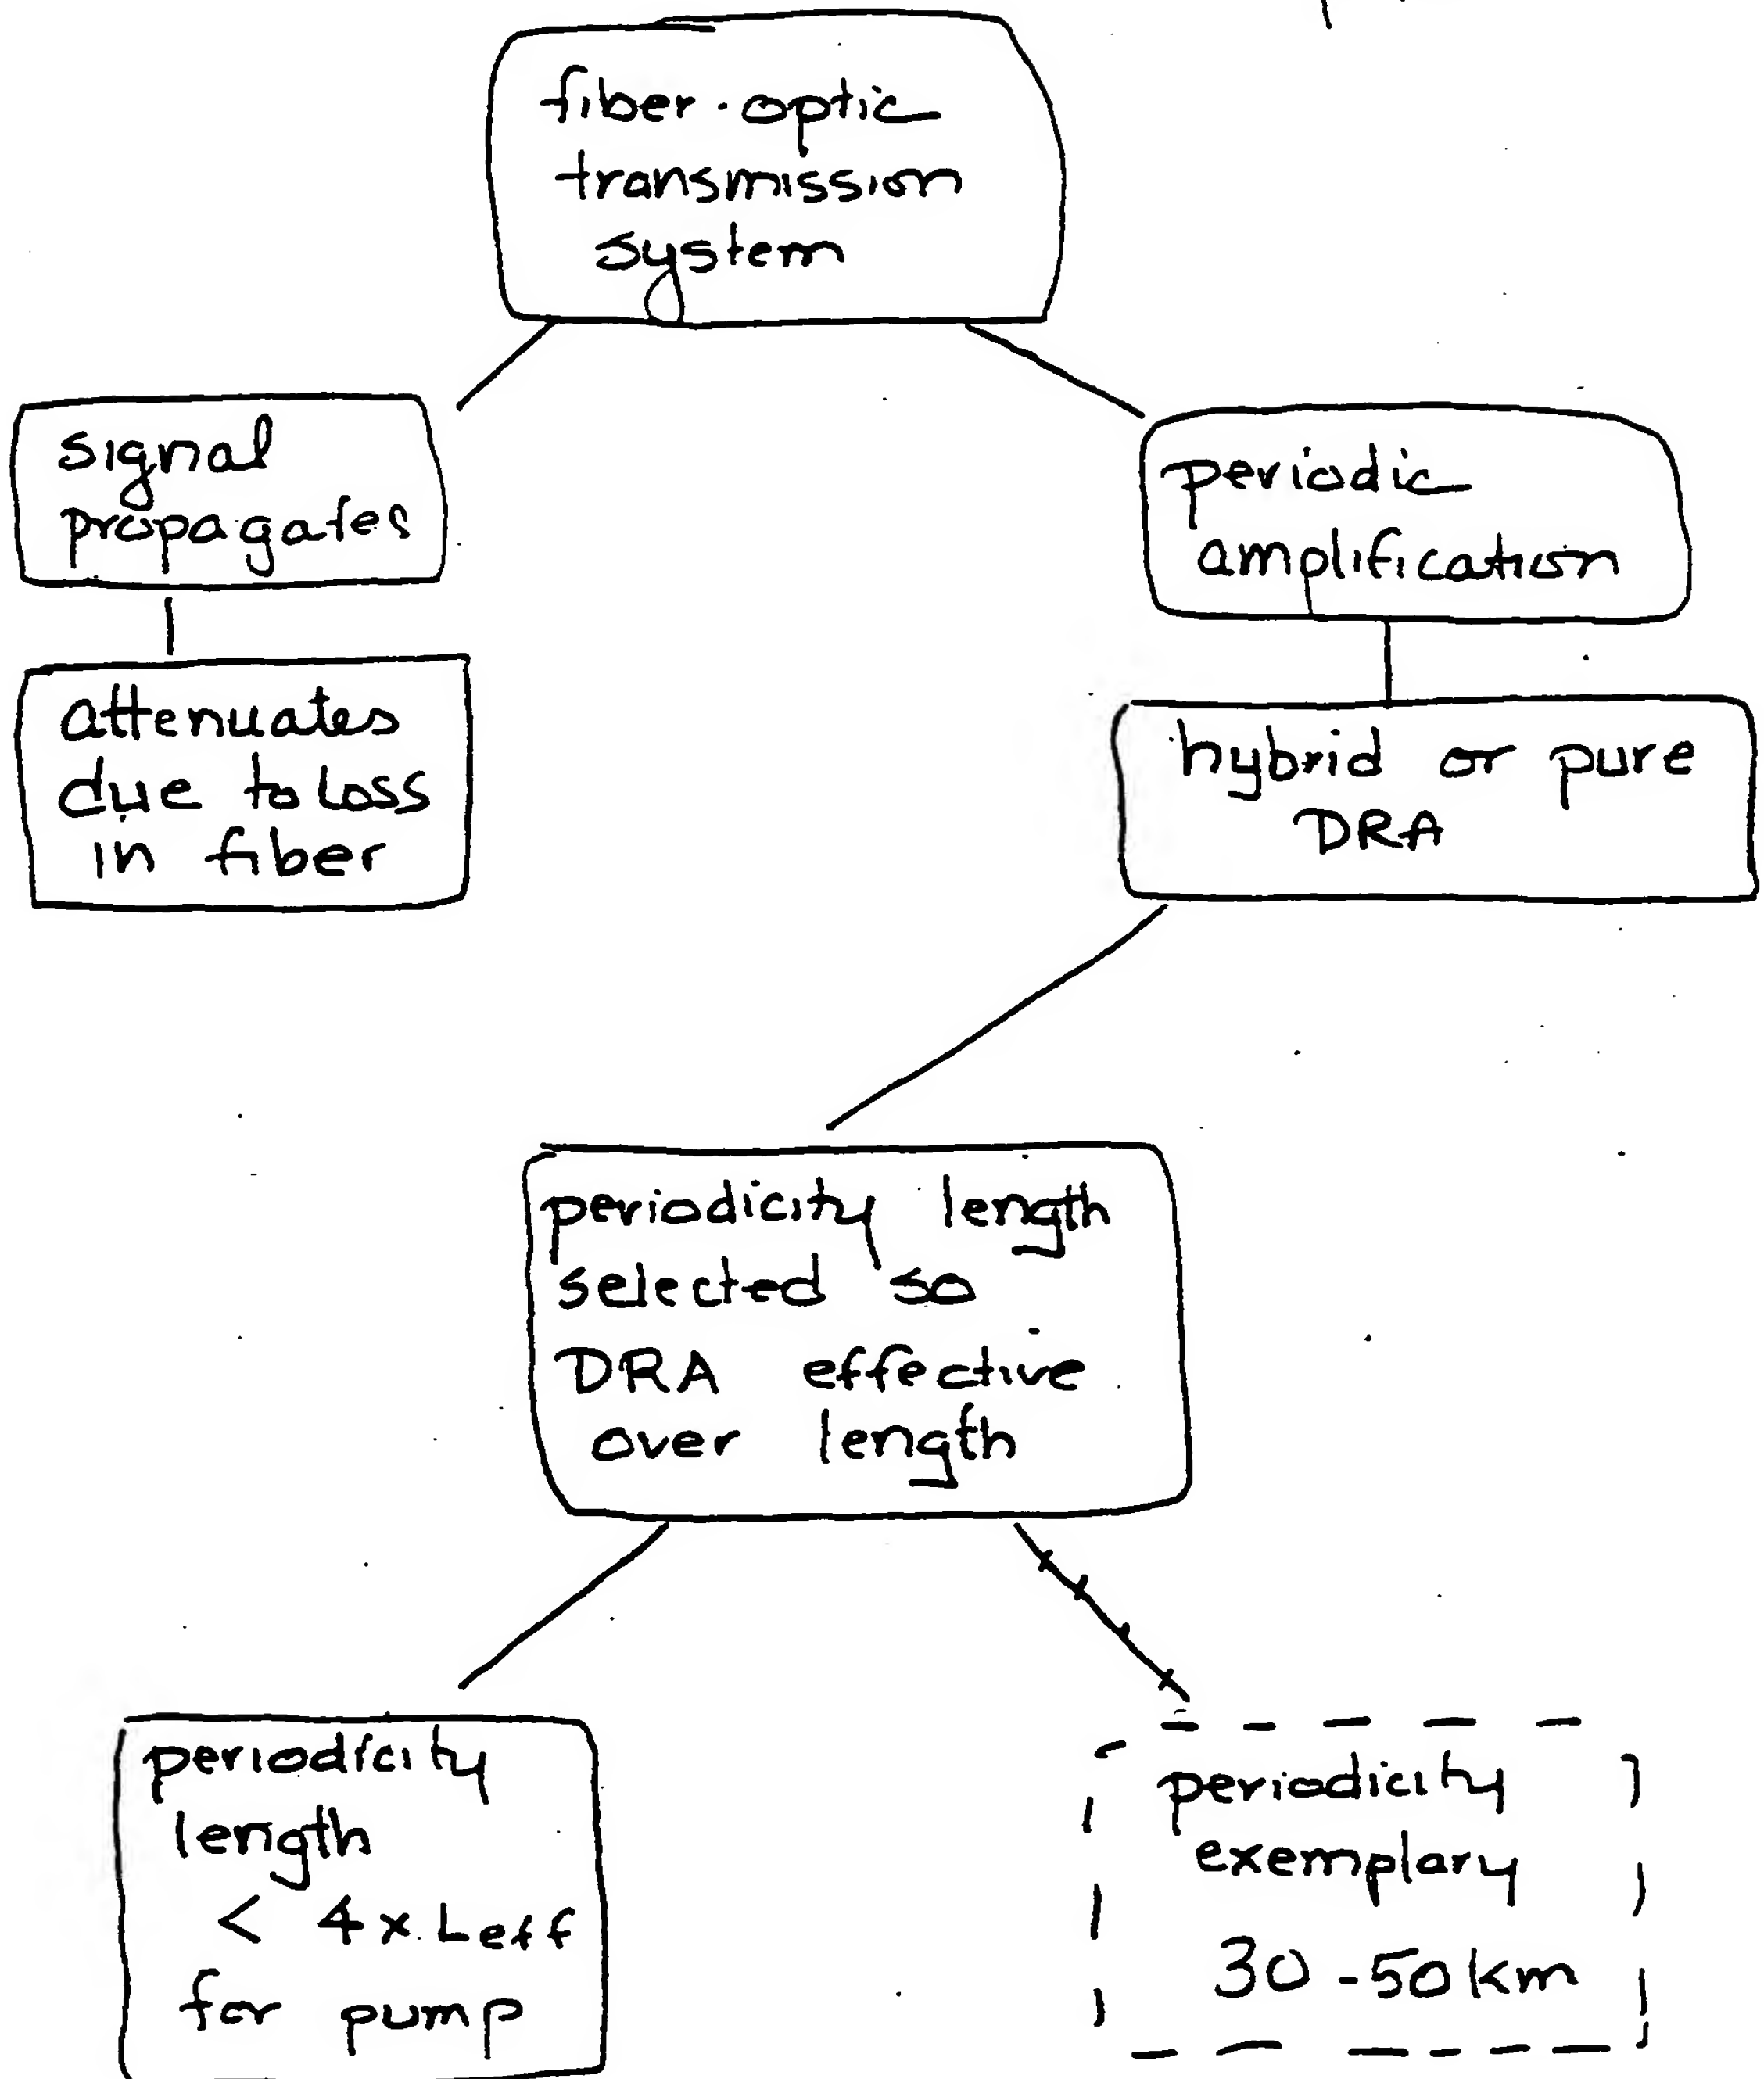 fiber-optic
transmission
system
signal
propagates
periodic
amplification
attenuates
due to loss
in fiber
hybrid or pure
DRA
periodicity length
selected so
DRA effective
over length
periodicity
length
< 4 x Leff
for pump
periodicity
exemplary
30-50 km